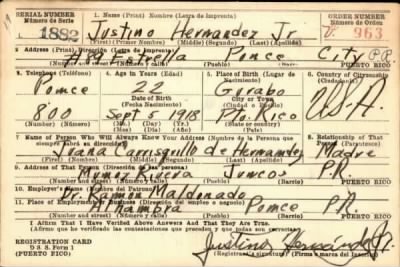 SERIAL NUMBER 1. Name (Print) (Letra de Imprenta) ORDER NUMBER
Número de Serie Número de Orden
1882 Justino Hernandez Jr 963
(First) (Primer Nombre) (Middle) (Segundo) (Last) (Apellido)
2. Address (Print) Dirección (Letra de Imprenta)
Estrella Ponce City P.R.
(Number and street) (Número y calle) (Town) (Pueblo) PUERTO RICO
3. Telephone (Teléfono) 4. Age in Years (Edad) 5. Place of Birth (Lugar de Nacimiento) 6. Country of Citizenship (Ciudadanía)
Ponce 22 Gurabo U.S.A.
Date of Birth (Fecha Nacimiento) City or Town (Ciudad o Pueblo)
800 Sept 5 1918 Pto. Rico
(Number) (Número) (Mo.) (Day) (Yr.)
7. Name of Person Who Will Always Know Your Address (Nombre de la Persona que siempre sabrá su dirección) 8. Relationship of That Person (Parentesco)
Juana Carrasquillo de Hernandez Madre
(First) (Middle) (Segundo) (Last) (Apellido)
9. Address of That Person (Dirección)
Muñoz Rivera Juncos P.R.
(Number and street) (Número y calle) (Town) (Pueblo) PUERTO RICO
10. Employer's Name (Nombre del Patrono)
Ramon Maldonado
11. Place of Employment or Business (Dirección del empleo o negocio)
Alhambra Ponce P.R.
(Number and street) (Número y calle) (Town) (Pueblo) PUERTO RICO
I Affirm That I Have Verified Above Answers And That They Are True.
(Afirmo que he verificado las contestaciones que preceden y que son ciertas)
REGISTRATION CARD
D. S. S. Form 1
(PUERTO RICO)
Justino Hernández Jr.
(Registrant's signature) (Firma o marca del Inscrito)